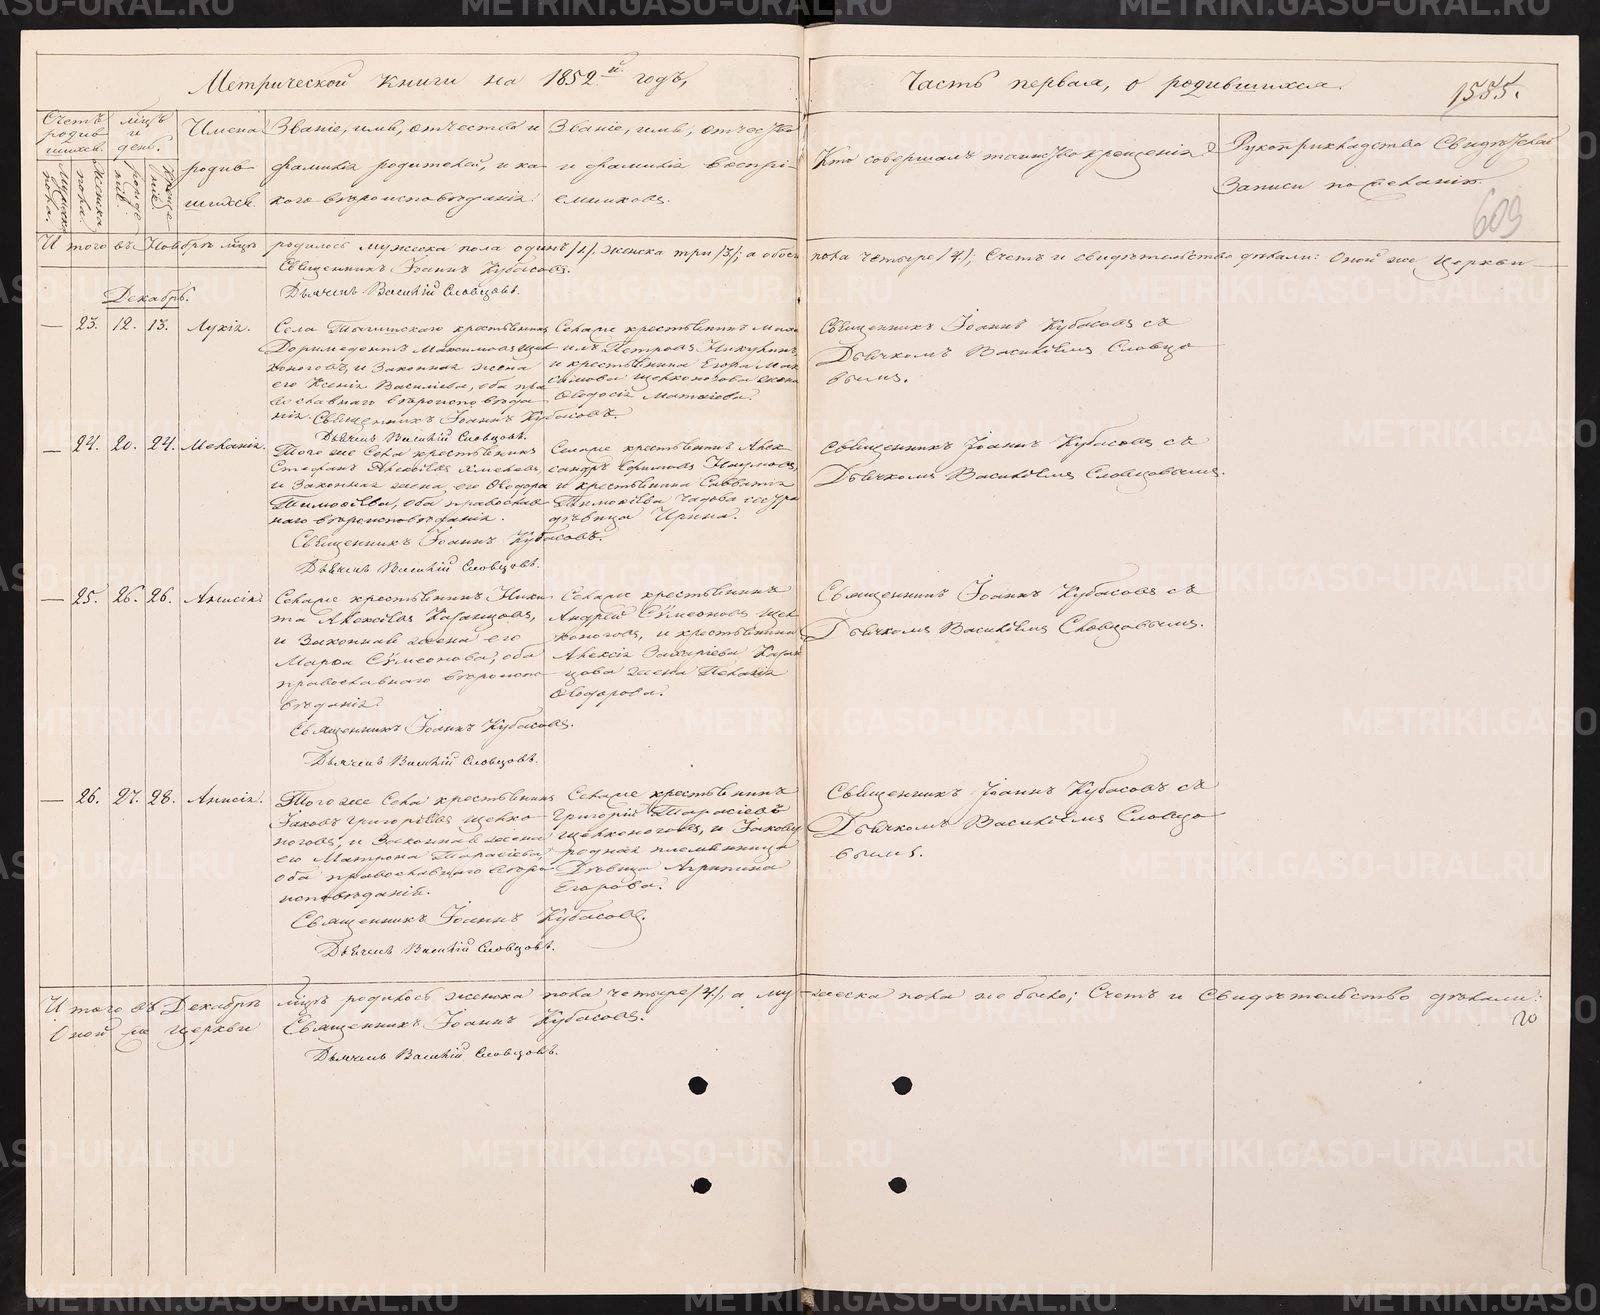 Метрической книги на 1852й годъ,
Часть первая, о родившихся.
1555.
609
Счетъ родившихся.
Мужеска пола.
Женска пола.
Мцъ и день.
Рожденія.
Крещенія.
Имена родившихся.
Званіе, имя, отчество и
фамилія родителей, и ка-
кого вѣроисповѣданія.
Званіе, имя, отчество
и фамилія воспрі-
емниковъ.
Кто совершалъ таинство крещенія?
Рукоприкладство Свидѣтелей
Записи по желанію.
Итого въ Ноябрѣ мцѣ родилось мужеска пола одинъ /1/. женска три /3/; а обоего пола четыре /4/; Счетъ и свидѣтельство дѣлали: Оной же Церкви
Священникъ Іоаннъ Кубасовъ.
Дьячекъ Василій Словцовъ.
Декабрь.
— 23. 12. 13. Лукія.
Села крестьянинъ
Доримедонтъ Максимовъ Щел-
коноговъ, и Законная жена
его Ксенія Василіева, оба пра-
вославнаго вѣроисповѣда-
нія.
Священникъ Іоаннъ Кубасовъ.
Дьячекъ Василій Словцовъ.
Сельные крестьянинъ Миха-
илъ Петровъ Никулинъ,
и крестьянина Егора Мак-
симова Щелконогова жена
Ѳеодосія Матѳіева.
Священникъ Іоаннъ Кубасовъ съ
Дьячкомъ Василіемъ Словцо-
вымъ.
— 24. 20. 24. Меланія.
Того же Села крестьянинъ
Стефанъ Алексіевъ
и Законная жена его Ѳеодора
Тимоѳіева, оба православ-
наго вѣроисповѣданія.
Священникъ Іоаннъ Кубасовъ.
Дьячекъ Василій Словцовъ.
крестьянинъ Алек-
сандръ Ефимовъ Наумовъ,
и крестьянина Савватія
Тимоѳіева сестра
дѣвица Ирина.
Священникъ Іоаннъ Кубасовъ съ
Дьячкомъ Василіемъ Словцовымъ.
— 25. 26. 26. Анисія.
крестьянинъ Ники-
та Алексіевъ Казанцовъ,
и Законная жена его
Марѳа Сѵмеонова, оба
православнаго вѣроиспо-
вѣданія.
Священникъ Іоаннъ Кубасовъ.
Дьячекъ Василій Словцовъ.
крестьянинъ
Андрей Сѵмеоновъ Щел-
коноговъ, и крестьянина
Алексія Захаріева Казан-
цова жена Пелагія
Ѳеодорова.
Священникъ Іоаннъ Кубасовъ съ
Дьячкомъ Василіемъ Словцовымъ.
— 26. 27. 28. Анисія.
Того же Села крестьянинъ
Іаковъ Григоріевъ Щелко-
ноговъ, и Законная жена
его Матрона Тарасіева,
оба православнаго вѣро-
исповѣданій.
Священникъ Іоаннъ Кубасовъ.
Дьячекъ Василій Словцовъ.
крестьянинъ
Григорій Тарасіевъ
Щелконоговъ, и Іакову
родная племянница
Дѣвица Агрипина
Егорова.
Священникъ Іоаннъ Кубасовъ съ
Дьячкомъ Василіемъ Словцо-
вымъ.
Итого въ Декабрѣ мцѣ родилось женска пола четыре /4/, а мужеска пола не было; Счетъ и Свидѣтельство дѣлали:
Оной же Церкви Священникъ Іоаннъ Кубасовъ.
Дьячекъ Василій Словцовъ.
METRIKI.GASO-URAL.RU